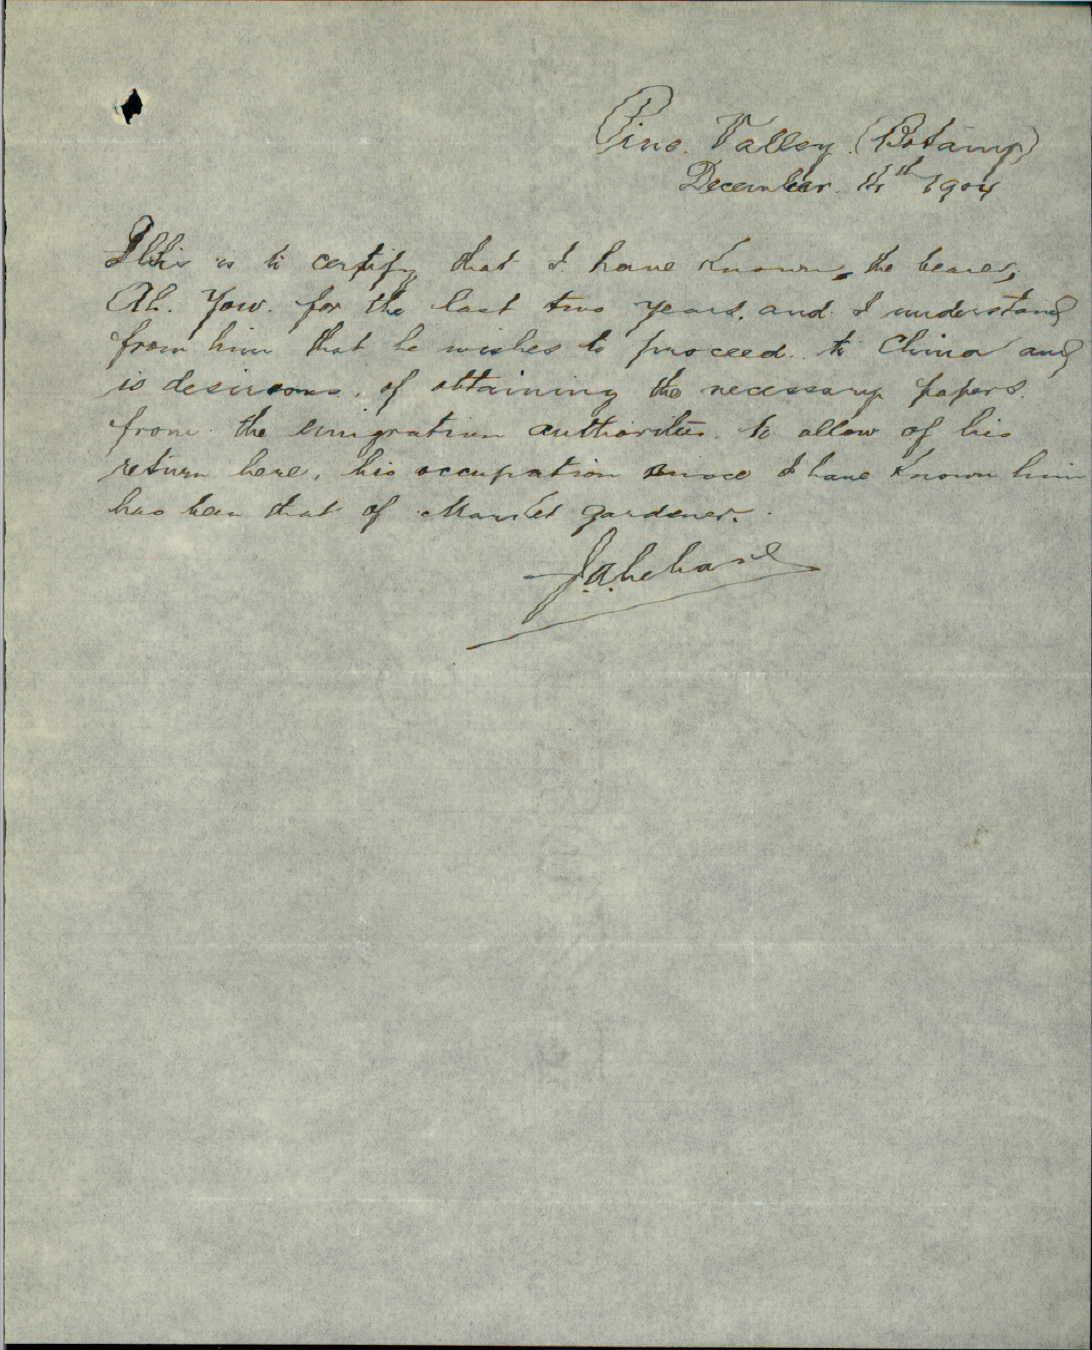 Pine Valley (Botany)
December 14th 1904
This is to certify that I have Known the bearer,
Ah. Yow. for the last two years. and I understand
from him that he wishes to proceed to China and
is desirous of obtaining the necessary papers
from the Emigration authorities to allow of his
return here, his occupation since I have Known him
has been that of Market gardener.